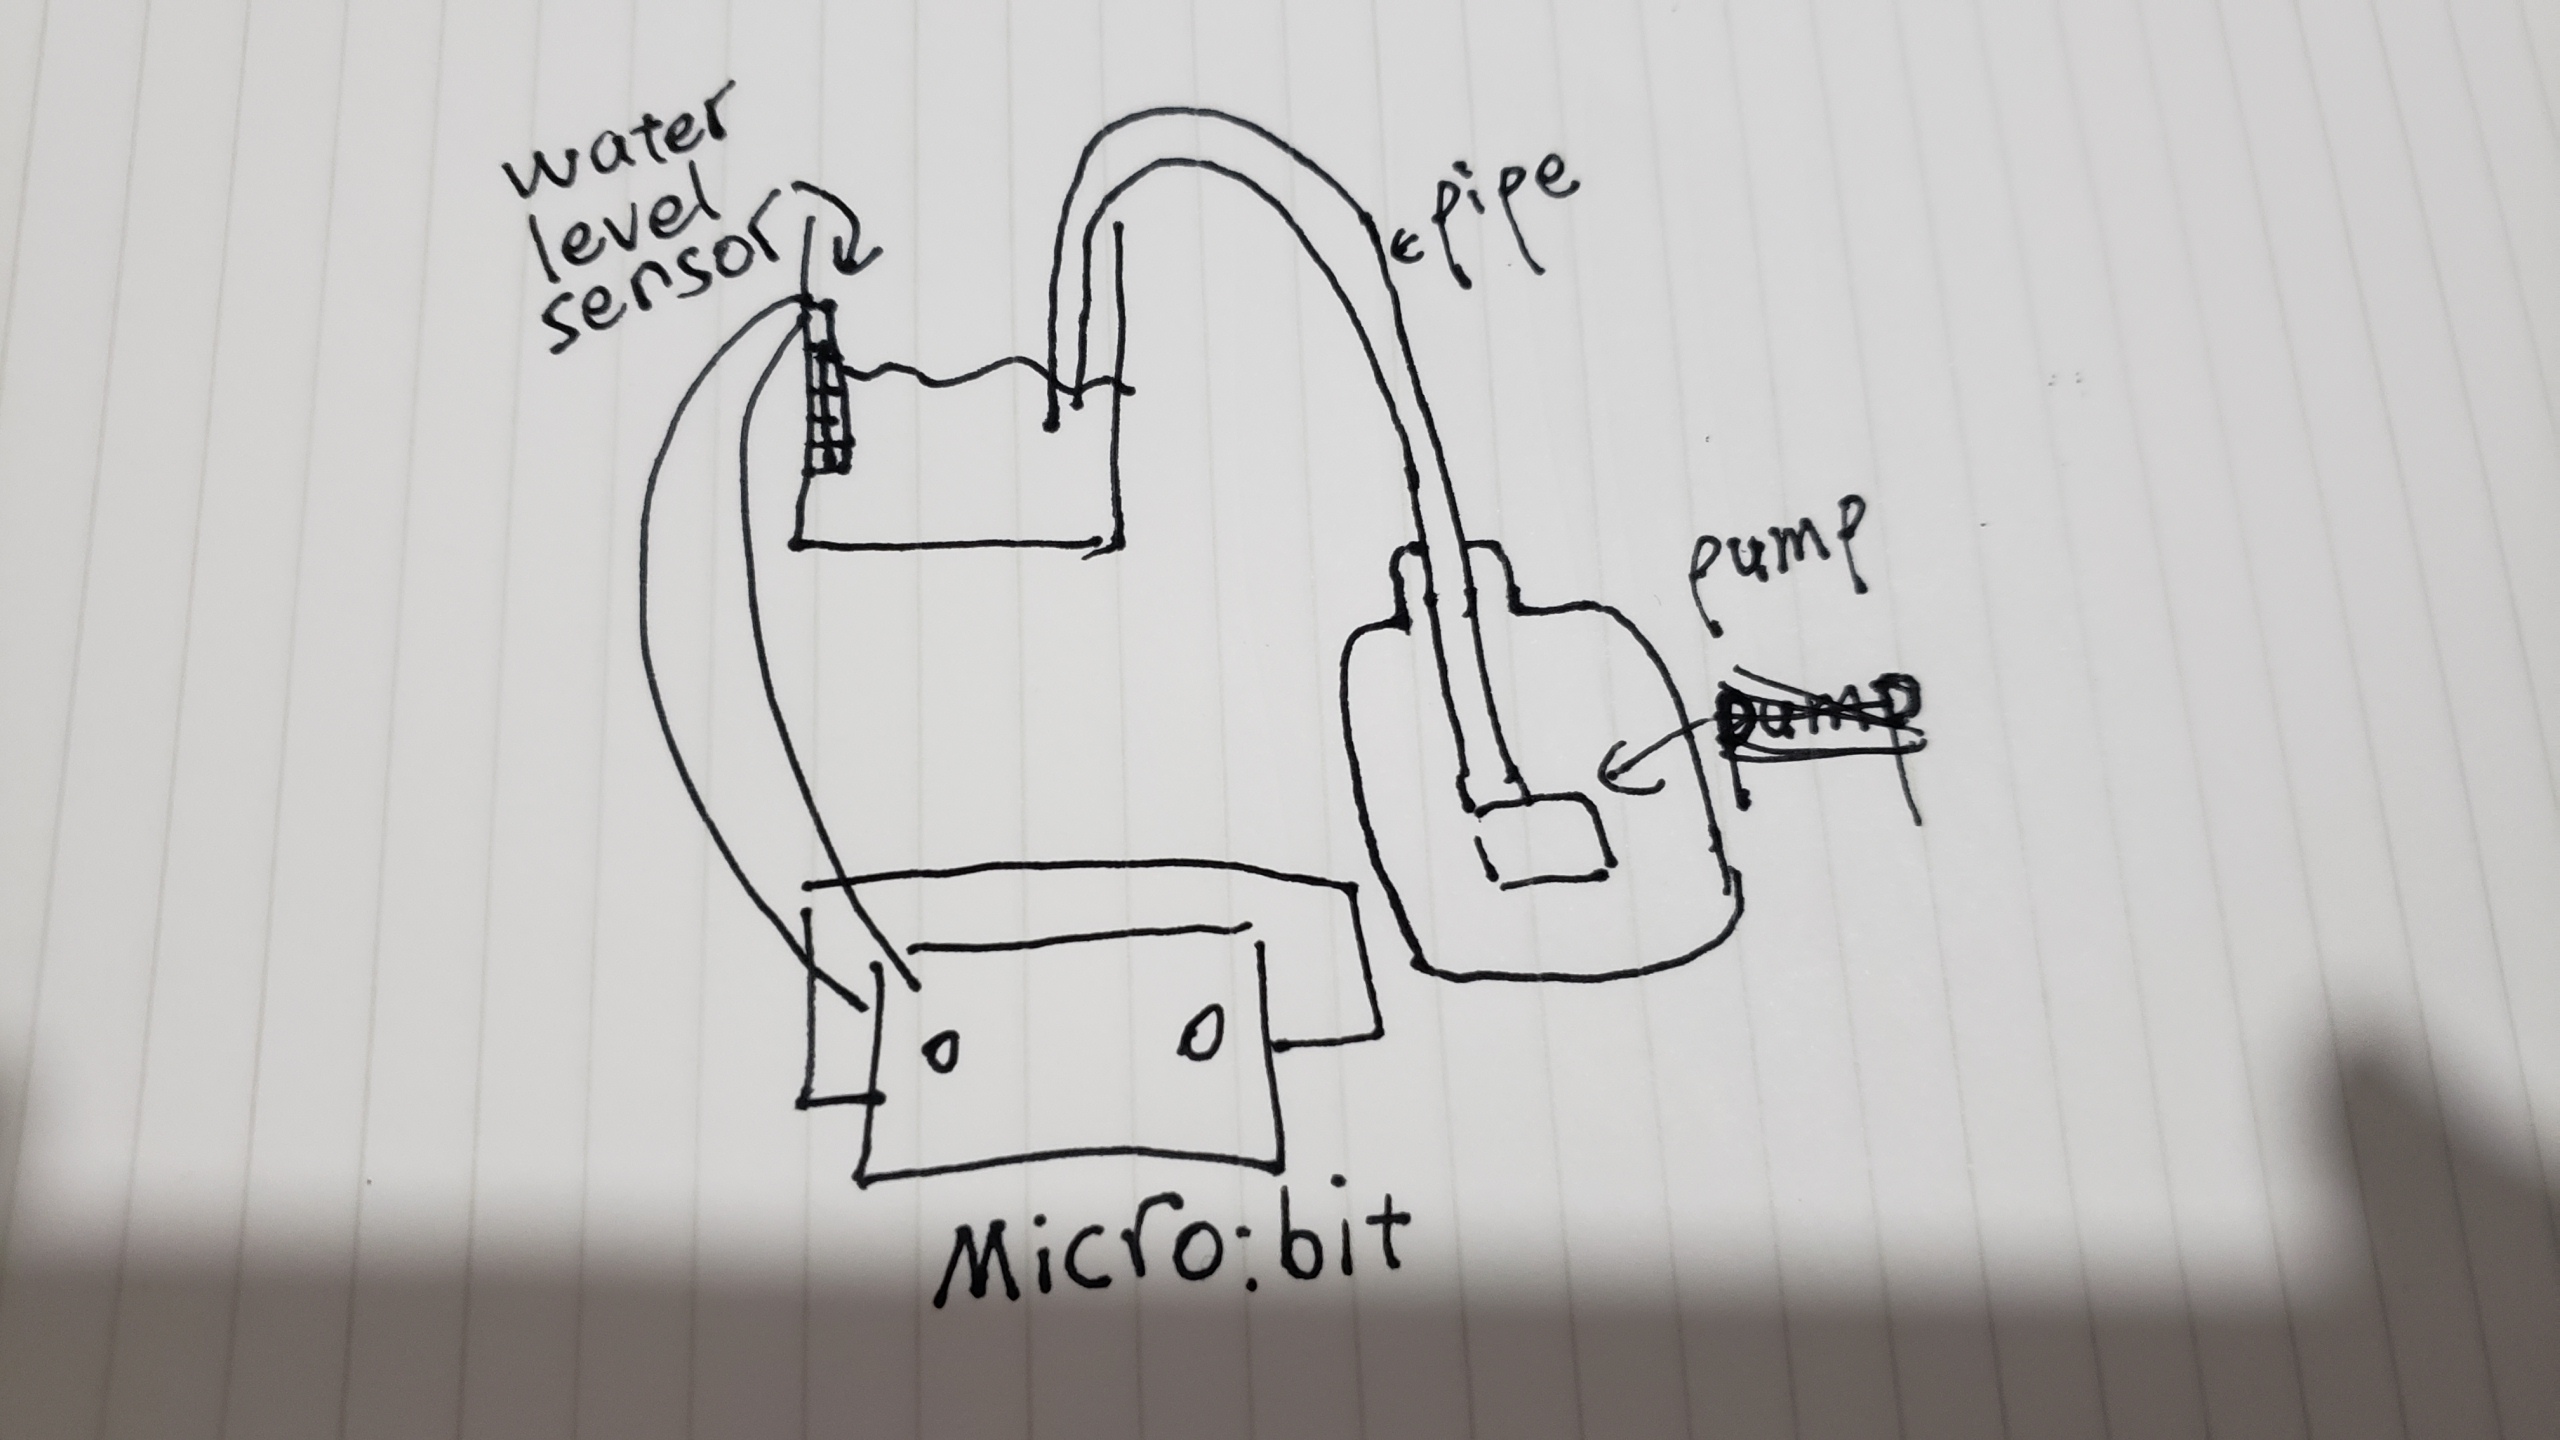 water
level
sensor
pipe
pump
pump
Micro:bit